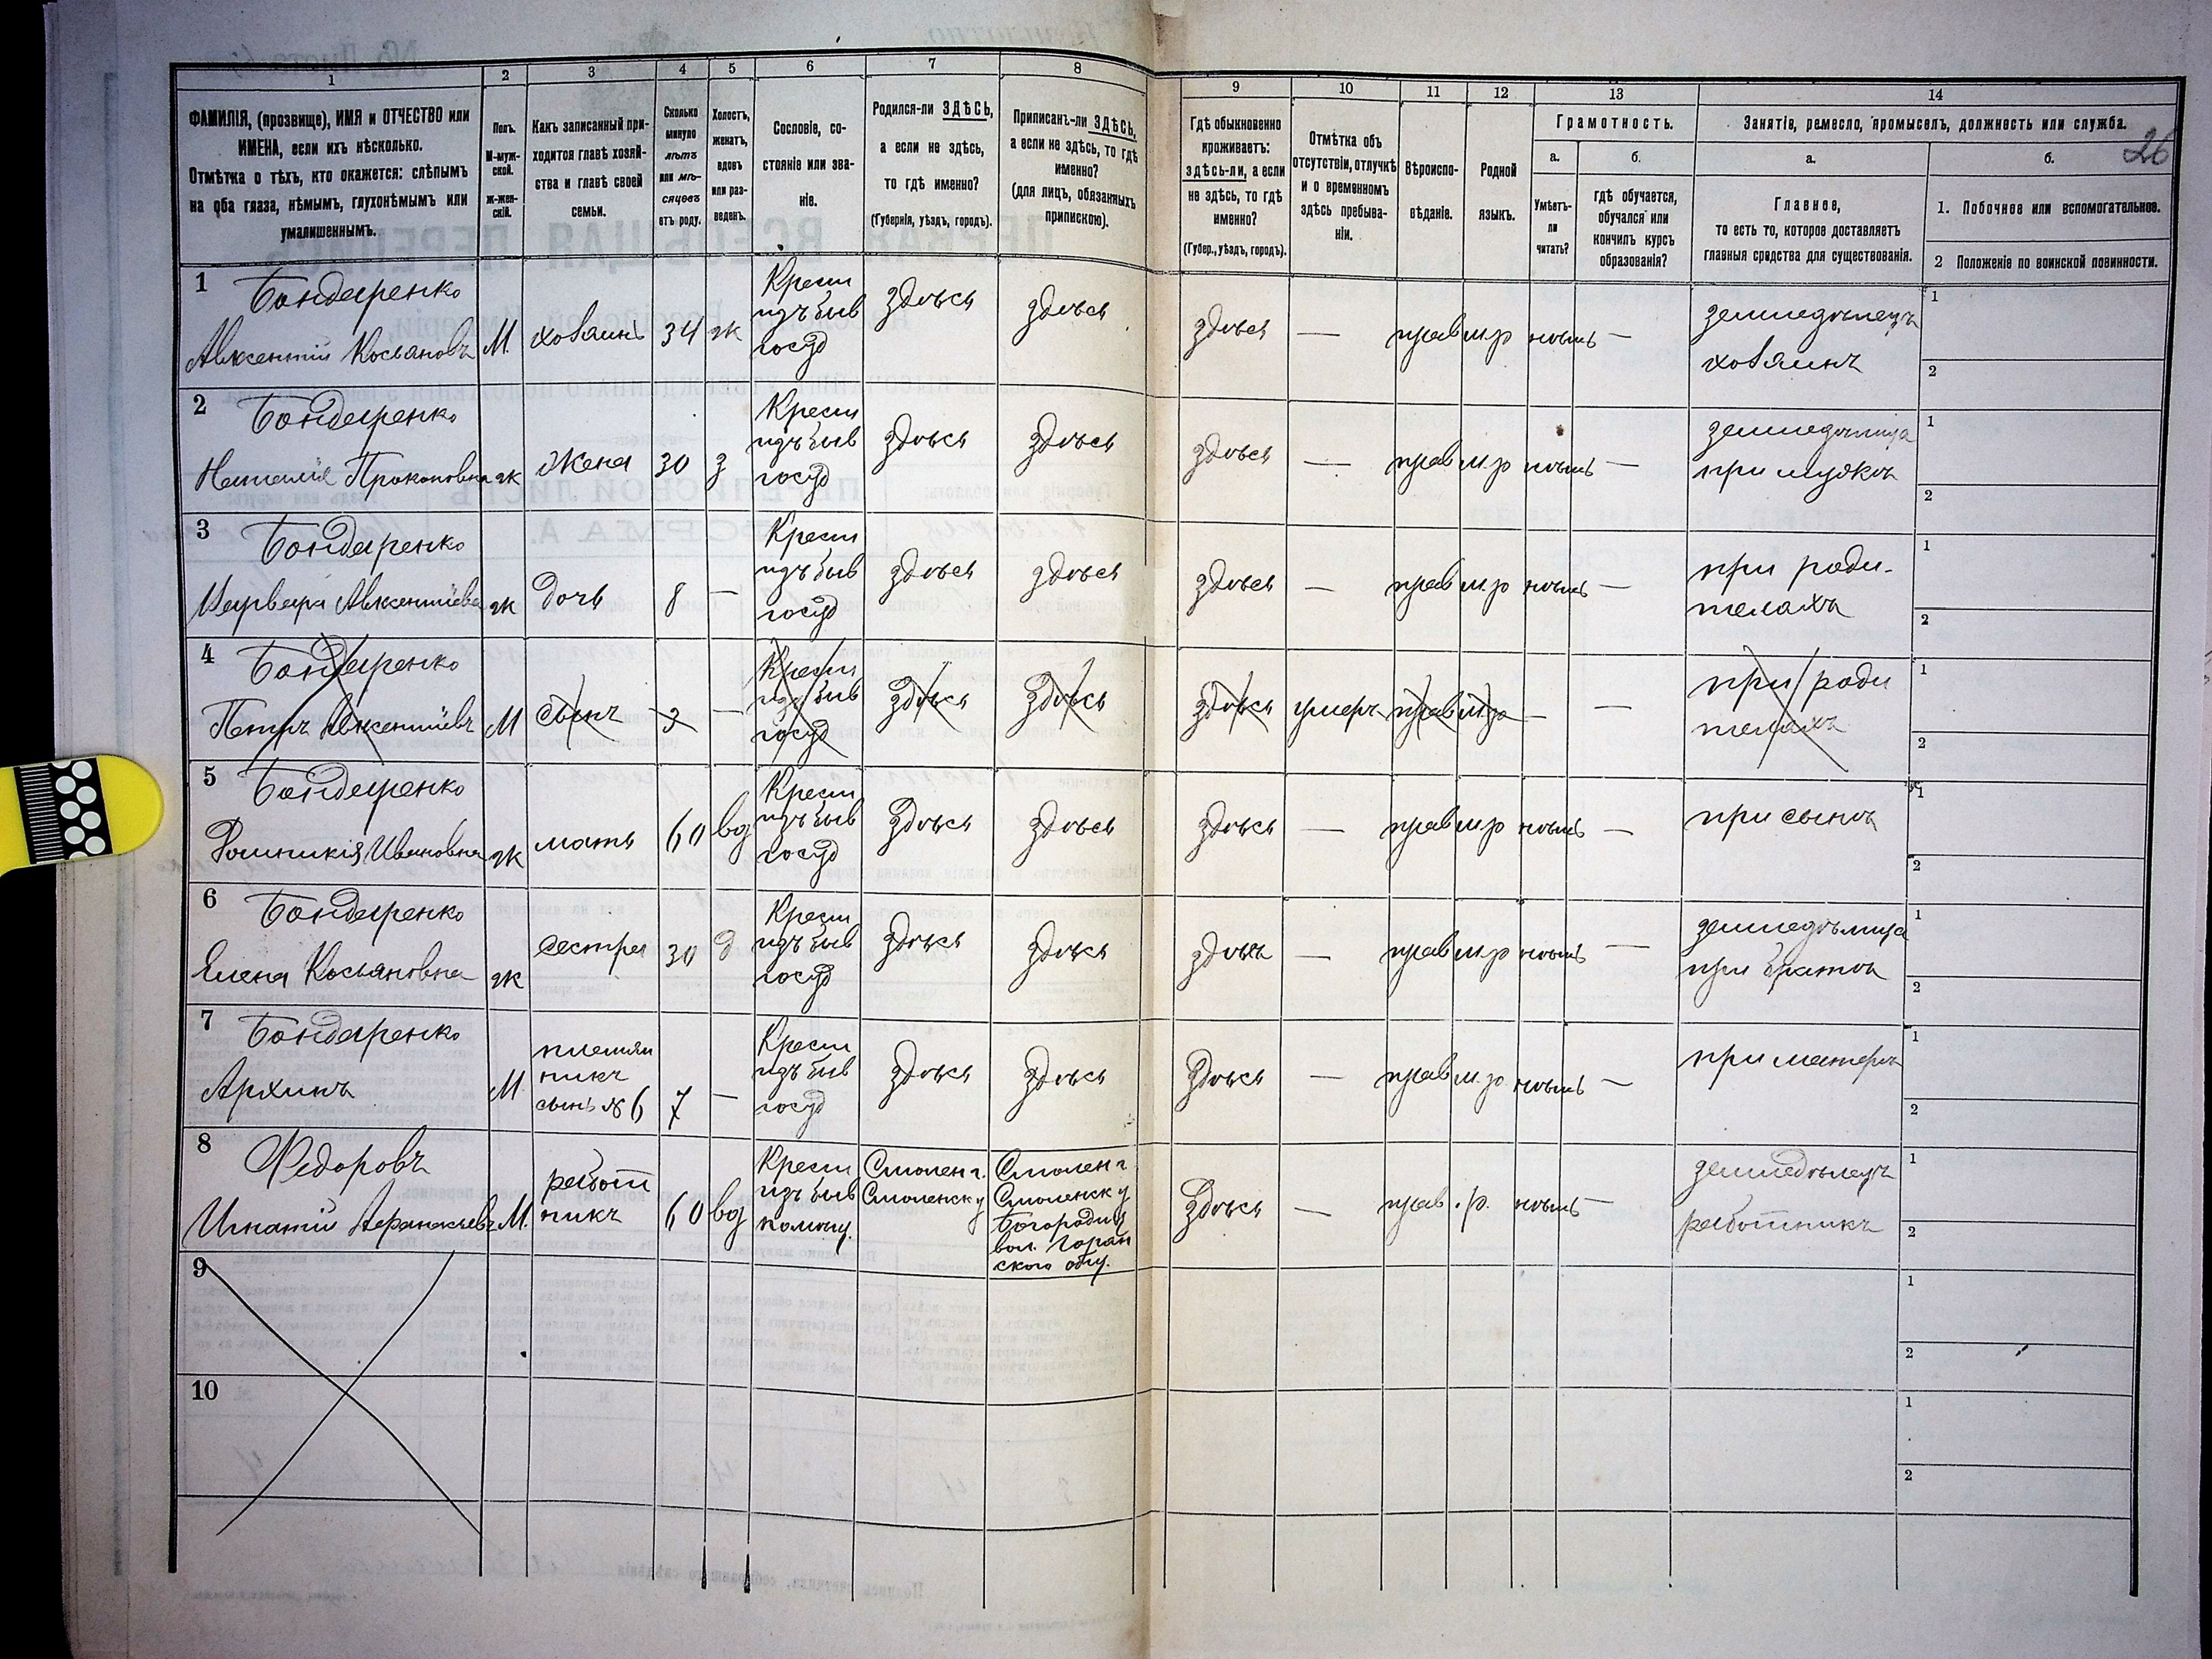 26
1
2
3
4
5
6
7
8
9
10
11
12
13
14
ФАМИЛІЯ, (прозвище), ИМЯ и ОТЧЕСТВО или
ИМЕНА, если ихъ нѣсколько.
Отмѣтка о тѣхъ, кто окажется: слѣпымъ
на оба глаза, нѣмымъ, глухонѣмымъ или
умалишеннымъ.
Полъ.
М-муж-
ской.
ж-жен-
скій.
Какъ записанный при-
ходится главѣ хозяй-
ства и главѣ своей
семьи.
Сколько
минуло
лѣтъ
или мѣ-
сяцевъ
отъ роду.
Холостъ,
женатъ,
вдовъ
или раз-
веденъ.
Сословіе, со-
стояніе или зва-
ніе.
Родился-ли ЗДѢСЬ,
а если не здѣсь,
то гдѣ именно?
(Губернія, уѣздъ, городъ).
Приписанъ-ли ЗДѢСЬ,
а если не здѣсь, то гдѣ
именно?
(для лицъ, обязанныхъ
припискою).
Гдѣ обыкновенно
проживаетъ:
здѣсь-ли, а если
не здѣсь, то гдѣ
именно?
(Губер., уѣздъ, городъ).
Отмѣтка объ
отсутствіи, отлучкѣ
и о временномъ
здѣсь пребыва-
ніи.
Вѣроиспо-
вѣданіе.
Родной
языкъ.
Грамотность.
а.
Умѣетъ-
ли
читать?
б.
гдѣ обучается,
обучался или
кончилъ курсъ
образованія?
Занятіе, ремесло, промыселъ, должность или служба.
а.
Главное,
то есть то, которое доставляетъ
главныя средства для существованія.
б.
1. Побочное или вспомогательное.
2 Положеніе по воинской повинности.
1
Бондаренко
Авксентій Косьяновъ
М.
хозяинъ
34
ж
Крест
изъ быв
госуд
здѣсь
здѣсь
здѣсь
—
прав
м.р
нѣтъ
—
земледѣлецъ
хозяинъ
1
2
2
Бондаренко
Наталія Прокоповна
ж
жена
30
з
Крест
изъ быв
госуд
здѣсь
здѣсь
здѣсь
—
прав
м.р
нѣтъ
—
земледѣлица
при мужѣ
1
2
3
Бондаренко
Варвара Авксентіева
ж
дочь
8
—
Крест
изъ быв
госуд
здѣсь
здѣсь
здѣсь
—
прав
м.р
нѣтъ
—
при роди-
теляхъ
1
2
4
Бондаренко
Петръ Авксентіевъ
М
сынъ
—
Крест
изъ быв
госуд
здѣсь
здѣсь
здѣсь
умеръ
прав
м.р
—
—
при роди
теляхъ
1
2
5
Бондаренко
Домникія Ивановна
ж
мать
60
вд
Крест
изъ быв
госуд
здѣсь
здѣсь
здѣсь
—
прав
м.р
нѣтъ
—
при сынѣ
1
2
6
Бондаренко
Елена Косьяновна
ж
сестра
30
д
Крест
изъ быв
госуд
здѣсь
здѣсь
здѣсь
—
прав
м.р
нѣтъ
—
земледѣлица
при братѣ
1
2
7
Бондаренко
Архипъ
М.
племян
никъ
сынъ № 6
7
—
Крест
изъ быв
госуд
здѣсь
здѣсь
здѣсь
—
прав
м.р.
нѣтъ
—
при матери
1
2
8
Федоровъ
Игнатій Афанасьевъ
М.
работ
никъ
60
вд
Крест
изъ быв
помѣщ.
Смолен г.
Смоленск у
Смолен г
Смоленск у
Богородиц
вол. Горян
ского общ.
здѣсь
—
прав
.р.
нѣтъ
—
земледѣлецъ
работникъ
1
2
9
1
2
10
1
2